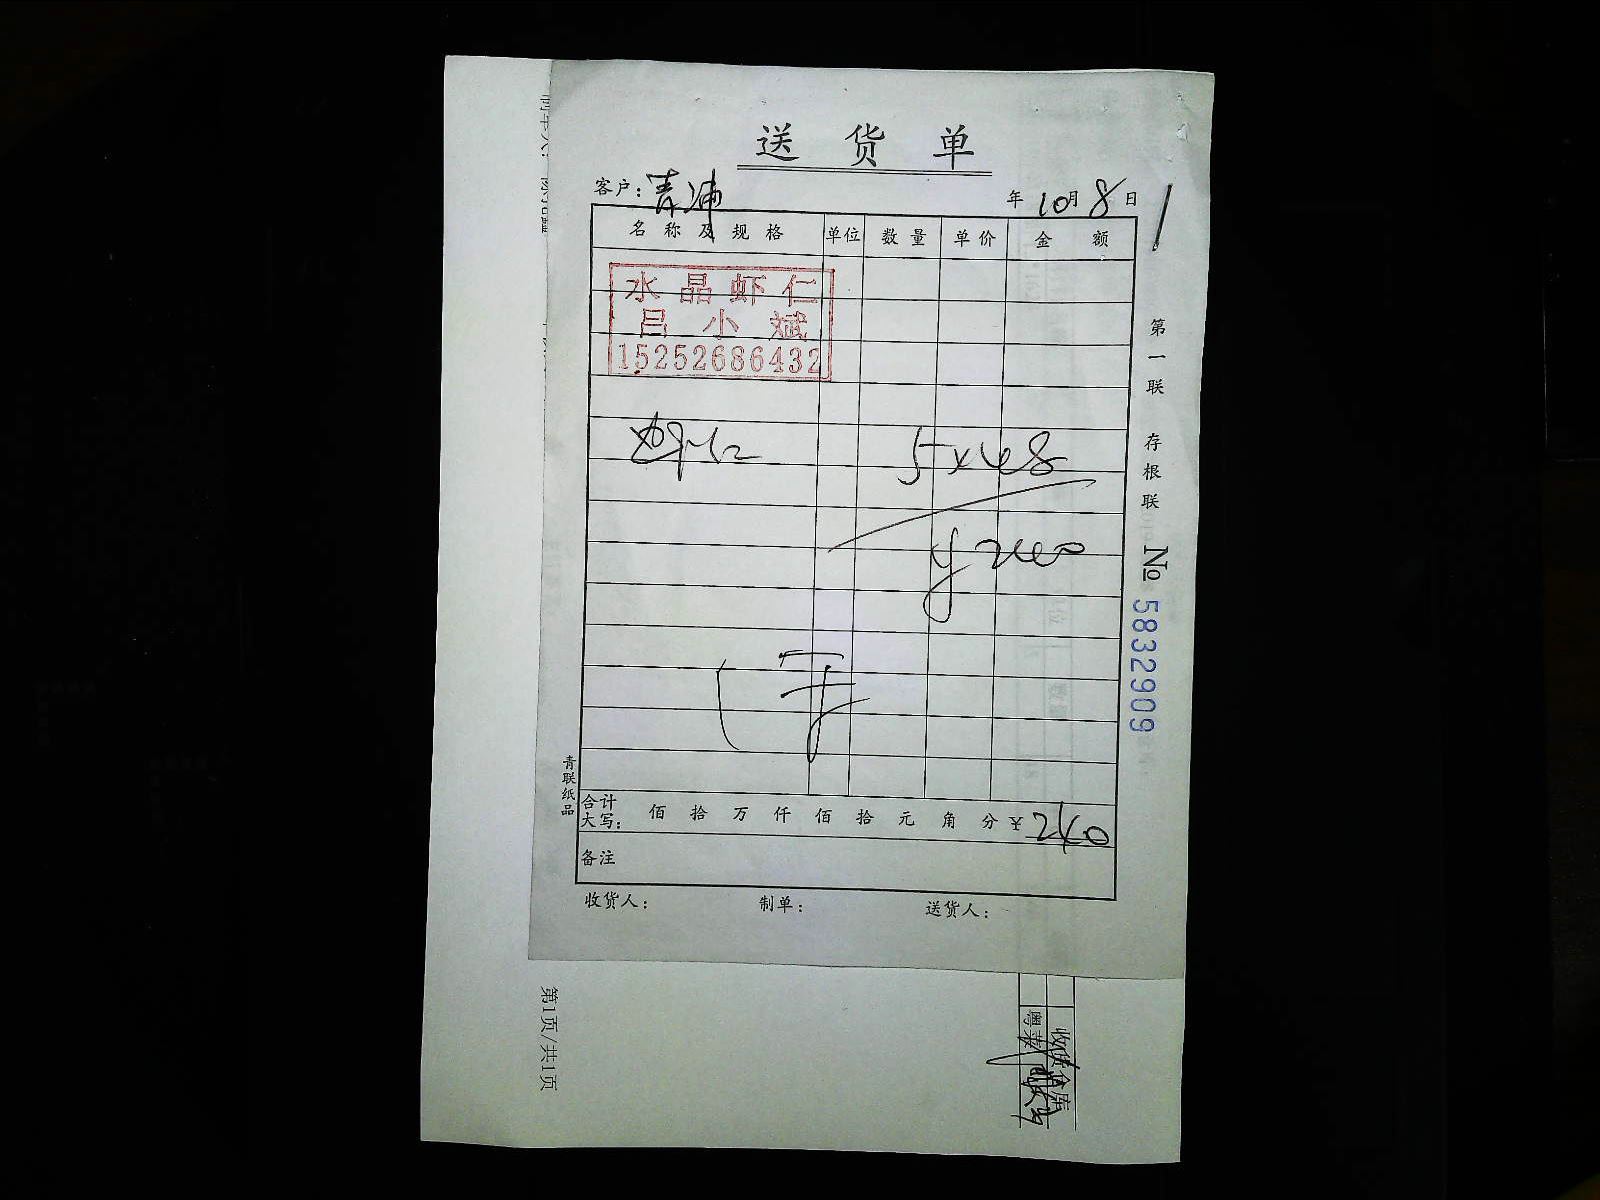 送 货 单
客户：青浦 年 10月 8日
名 称 及 规 格 单位 数 量 单 价 金 额
水 晶 虾 仁
吕 小 斌
15252686432
虾仁 5×48
¥240
合计大写： 佰 拾 万 仟 佰 拾 元 角 分 ¥ 240
备注
收货人： 制单： 送货人：
第一联 存根联 № 5832909
青联纸品
第1页/共1页
收货仓库
粤菜